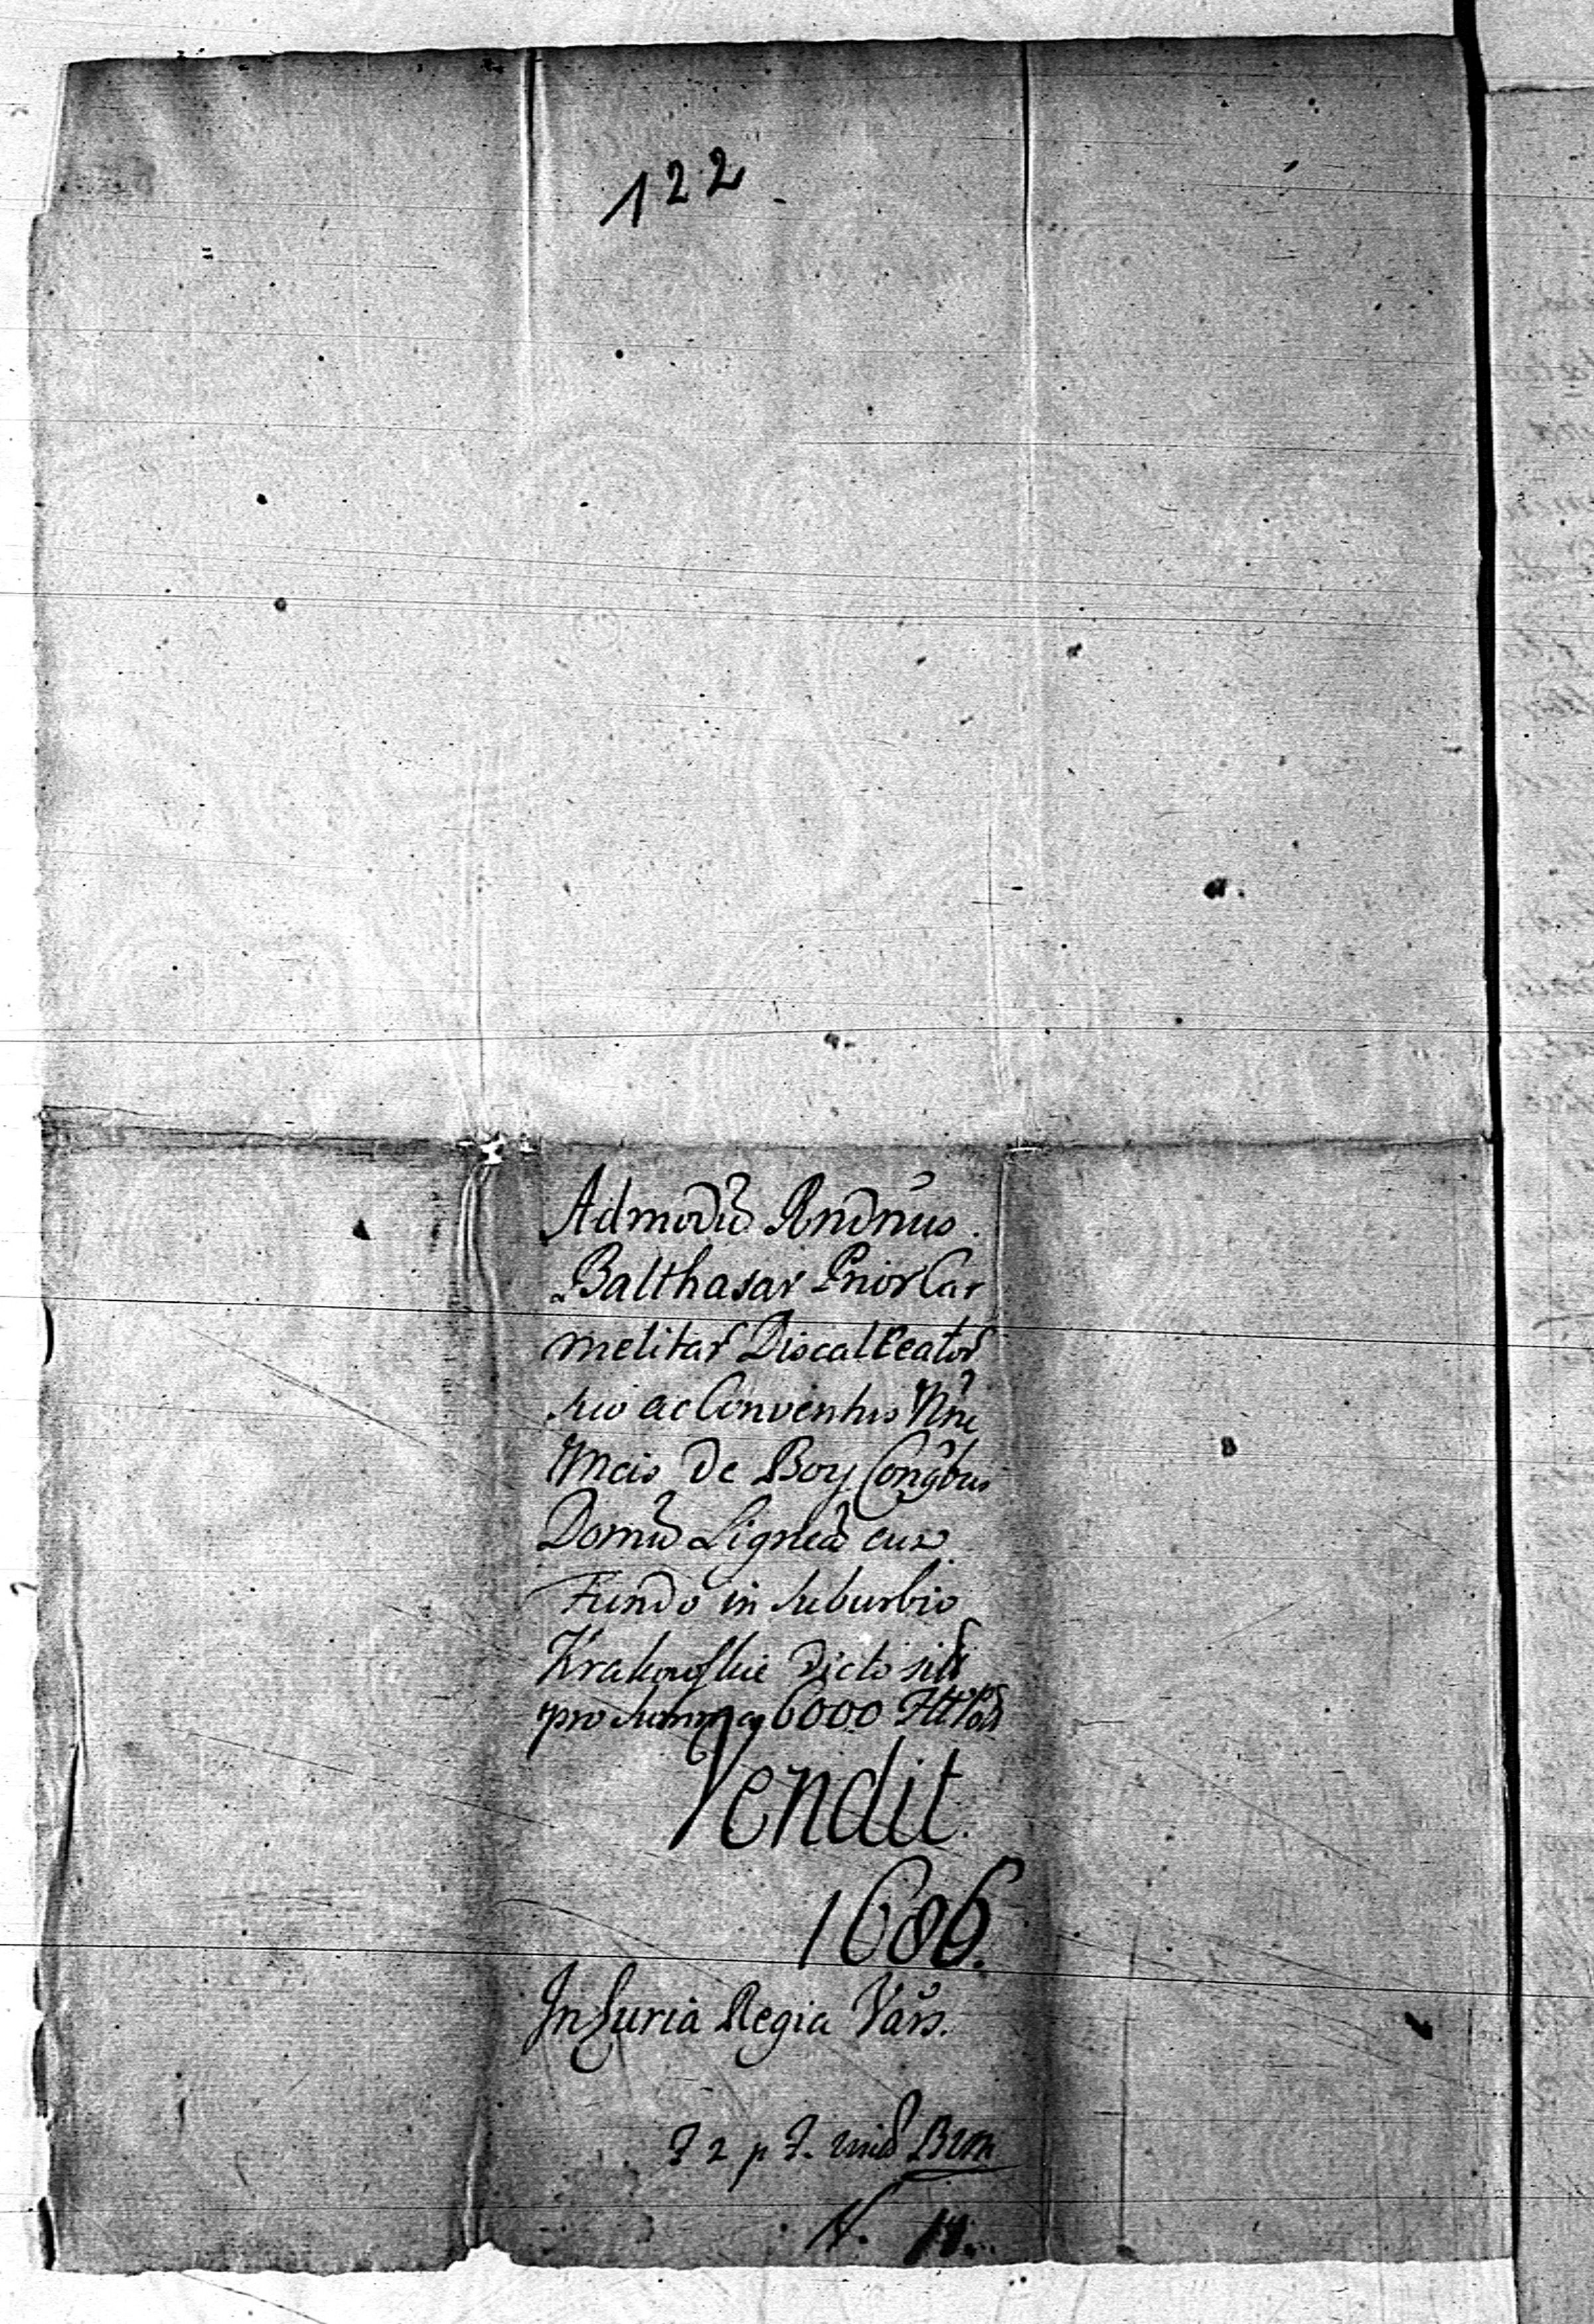 122
Admodũ Rndnus.
Balthasar Prior Car
melitar Discalceator
suo ac Conventus Nne
Mcis De Boy Congbus
Domũ Ligneã cum
Fundo in suburbio
Krakowskie Dicto siti
pro summa 6000 Fll Pol
Vendit
1686.
In Curia Regia Vars.
F 2 p F. Bvm
N.